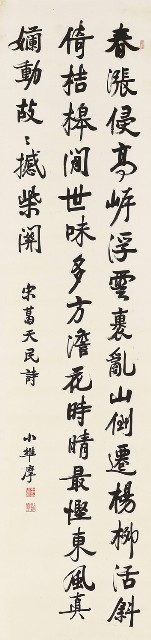 春漲侵高岸浮雲裏亂山倒遷楊柳活斜
倚桔槔閒世味多方澹花時晴最慳東風真
嫻動故〻撼柴関
宋葛天民詩
小維摩